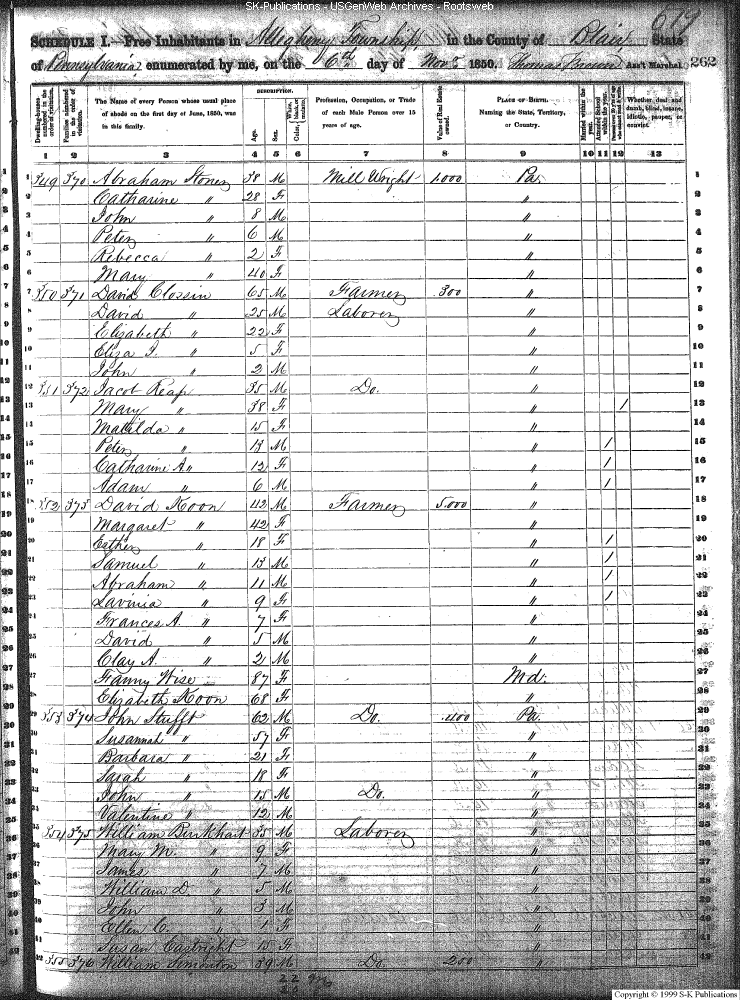 SK-Publications - USGenWeb Archives - Rootsweb
619
SCHEDULE I.—Free Inhabitants in Allegheny Township, in the County of Blair, State
of Pennsylvania, enumerated by me, on the 6th day of Novr 1850. Thomas Ass't Marshal. 262
Dwelling-houses numbered in the order of visitation.
Families numbered in the order of visitation.
The Name of every Person whose usual place of abode on the first day of June, 1850, was in this family.
DESCRIPTION.
Age.
Sex.
Color, White, black, or mulatto.
Profession, Occupation, or Trade of each Male Person over 15 years of age.
Value of Real Estate owned.
PLACE OF BIRTH. Naming the State, Territory, or Country.
Married within the year.
Attended School within the year.
Persons over 20 y'rs of age who cannot read & write.
Whether deaf and dumb, blind, insane, idiotic, pauper, or convict.
1 2 3 4 5 6 7 8 9 10 11 12 13
1 349 370 Abraham Stoner 38 M Mill Wright 1.000 Pa. 1
2 Catharine " 28 F " 2
3 John " 8 M " 3
4 Peter " 6 M " 4
5 Rebecca " 2 F " 5
6 Mary " 40 F " 6
7 350 371 David Clossin 65 M Farmer 300 " 7
8 David " 25 M Laborer " 8
9 Elizabeth " 22 F " 9
10 Eliza J. " 5 F " 10
11 John " 2 M " 11
12 351 372 Jacob Reap 35 M Do. " 12
13 Mary " 38 F " / 13
14 Matilda " 15 F " 14
15 Peter " 13 M " / 15
16 Catharine A " 12 F " / 16
17 Adam " 6 M " / 17
18 352 373 David Koon 42 M Farmer 5.000 " 18
19 Margaret " 42 F " 19
20 Esther " 18 F " / 20
21 Samuel " 13 M " / 21
22 Abraham " 11 M " / 22
23 Lavinia " 9 F " / 23
24 Frances A. " 7 F " 24
25 David " 5 M " 25
26 Clay A. " 2 M " 26
27 Fanny Wise 87 F Md. 27
28 Elizabeth Koon 68 F " 28
29 353 374 John Stufft 62 M Do. 400 Pa. 29
30 Susannah " 57 F " 30
31 Barbara " 21 F " 31
32 Sarah " 18 F " 32
33 John " 15 M Do. " 33
34 Valentine " 12 M " 34
35 354 375 William Burkhart 35 M Laborer " 35
36 Mary M. " 9 F " 36
37 James " 7 M " 37
38 William D. " 5 M " 38
39 John " 3 M " 39
40 Ellen C. " 1 F " 40
41 Susan 15 F " 41
42 355 376 William Simonton 39 M Do. 200 " 42
22
Copyright © 1999 S-K Publications